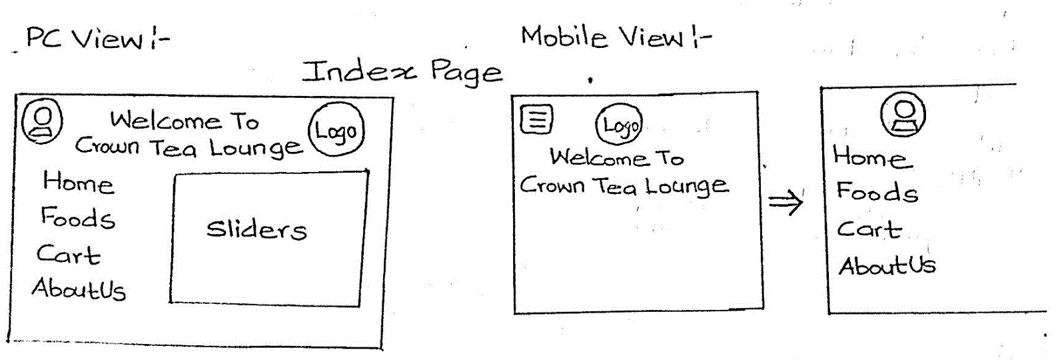 PC View:-
Mobile View:-
Index Page
Welcome To
Crown Tea Lounge
Logo
Home
Foods
Cart
AboutUs
Sliders
Logo
Welcome To
Crown Tea Lounge
Home
Foods
Cart
AboutUs